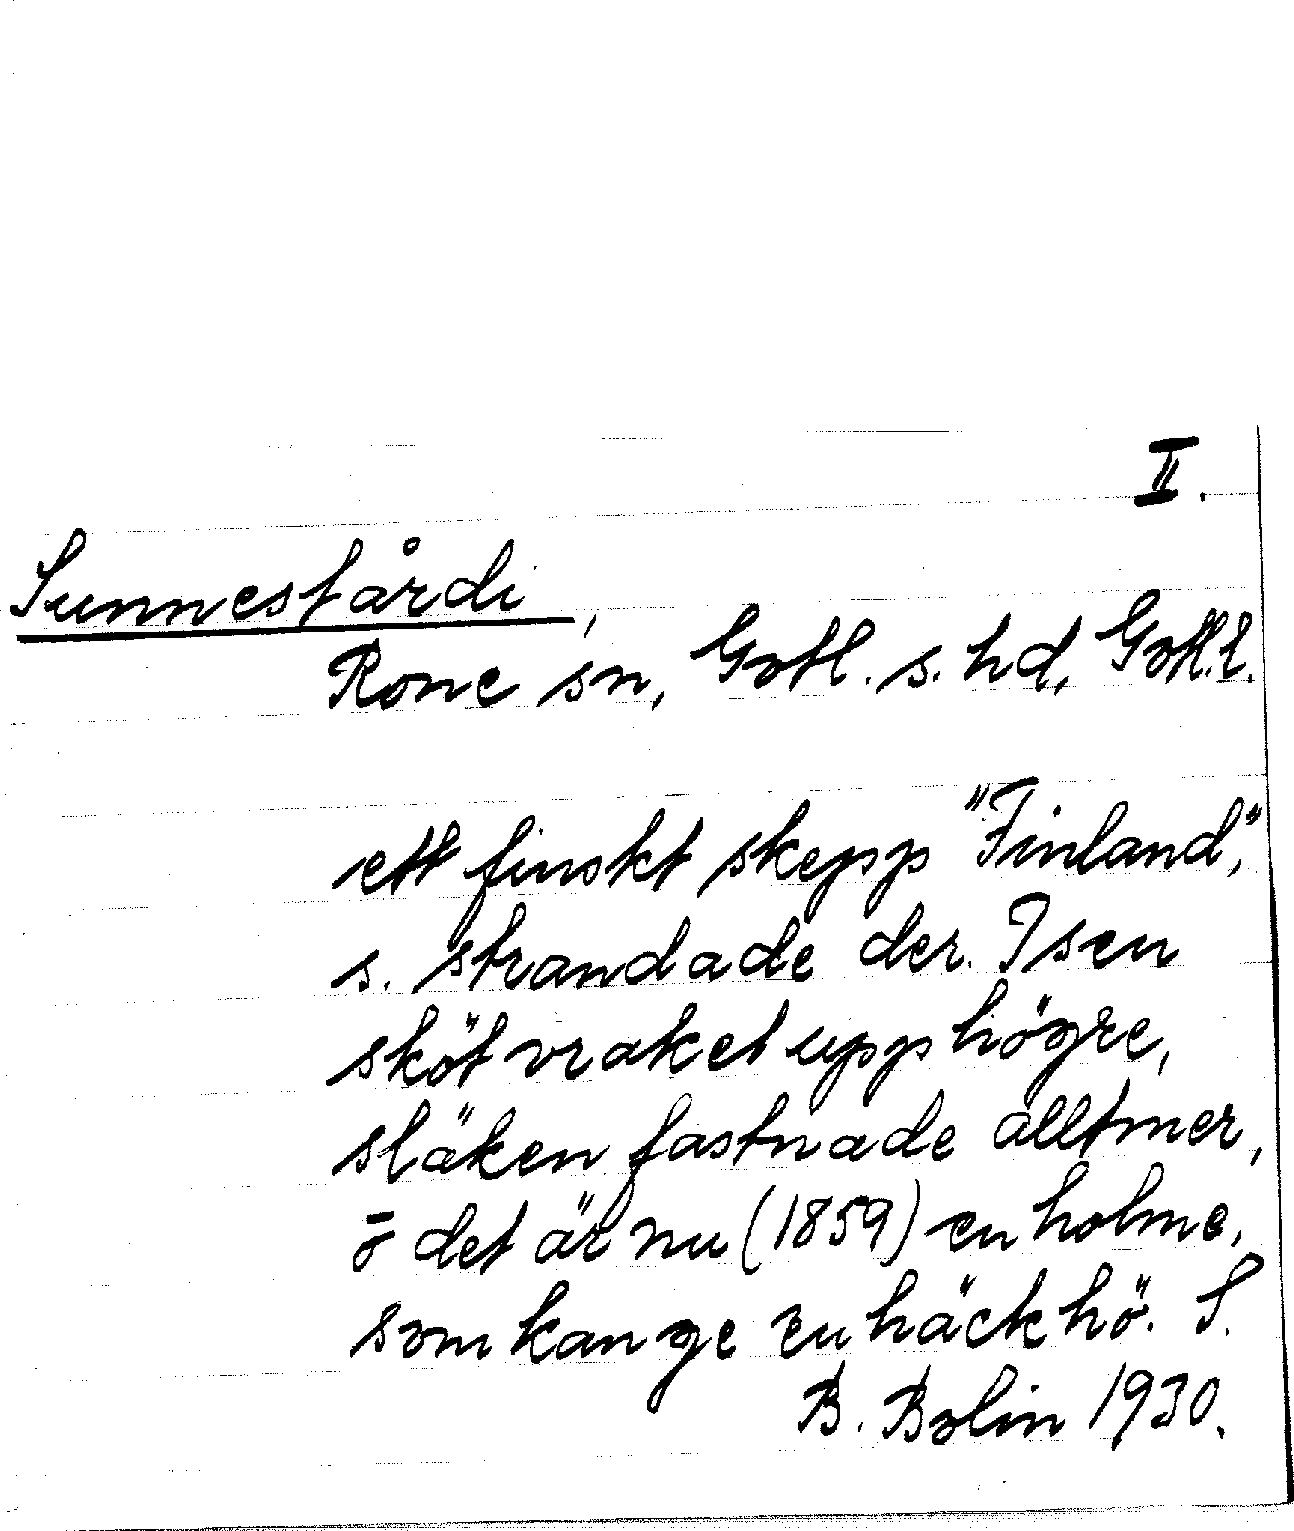 II.
Sunnestårdi,
Rone sn, Gotl. s. hd, Gotl. l.
ett finskt skepp "Finland",
s. strandade der. Isen
sköt vraket upp högre,
släken fastnade alltmer,
ō det är nu (1859) en holme,
som kan ge en häck hö. S.
B. Bolin 1930.